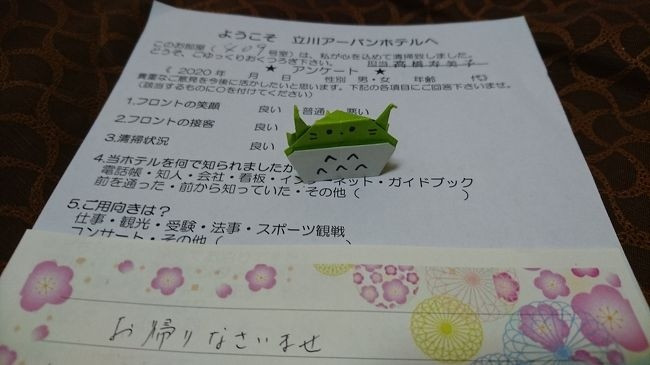 ようこそ 立川アーバンホテルへ
このお部屋(409号室)は、私が心を込めて清掃致しました。
どうそ、ごゆっくりおくつろぎ下さい。 担当 髙橋寿美子
★ アンケート ★
《2020年 月 日 性別 男・女 年齢 代》
貴重なご意見を今後に活かしたいと思います。下記の各項目にご回答下さいませ。
(該当するものに○を付けてください)
1.フロントの笑顔 良い 普通 悪い
2.フロントの接客 良い
3.清掃状況 良い
4.当ホテルを何で知られましたか
電話帳・知人・会社・看板・インターネット・ガイドブック
前を通った・前から知っていた・その他( )
5.ご用向きは?
仕事・観光・受験・法事・スポーツ観戦
コンサート・その他( )
お帰りなさいませ